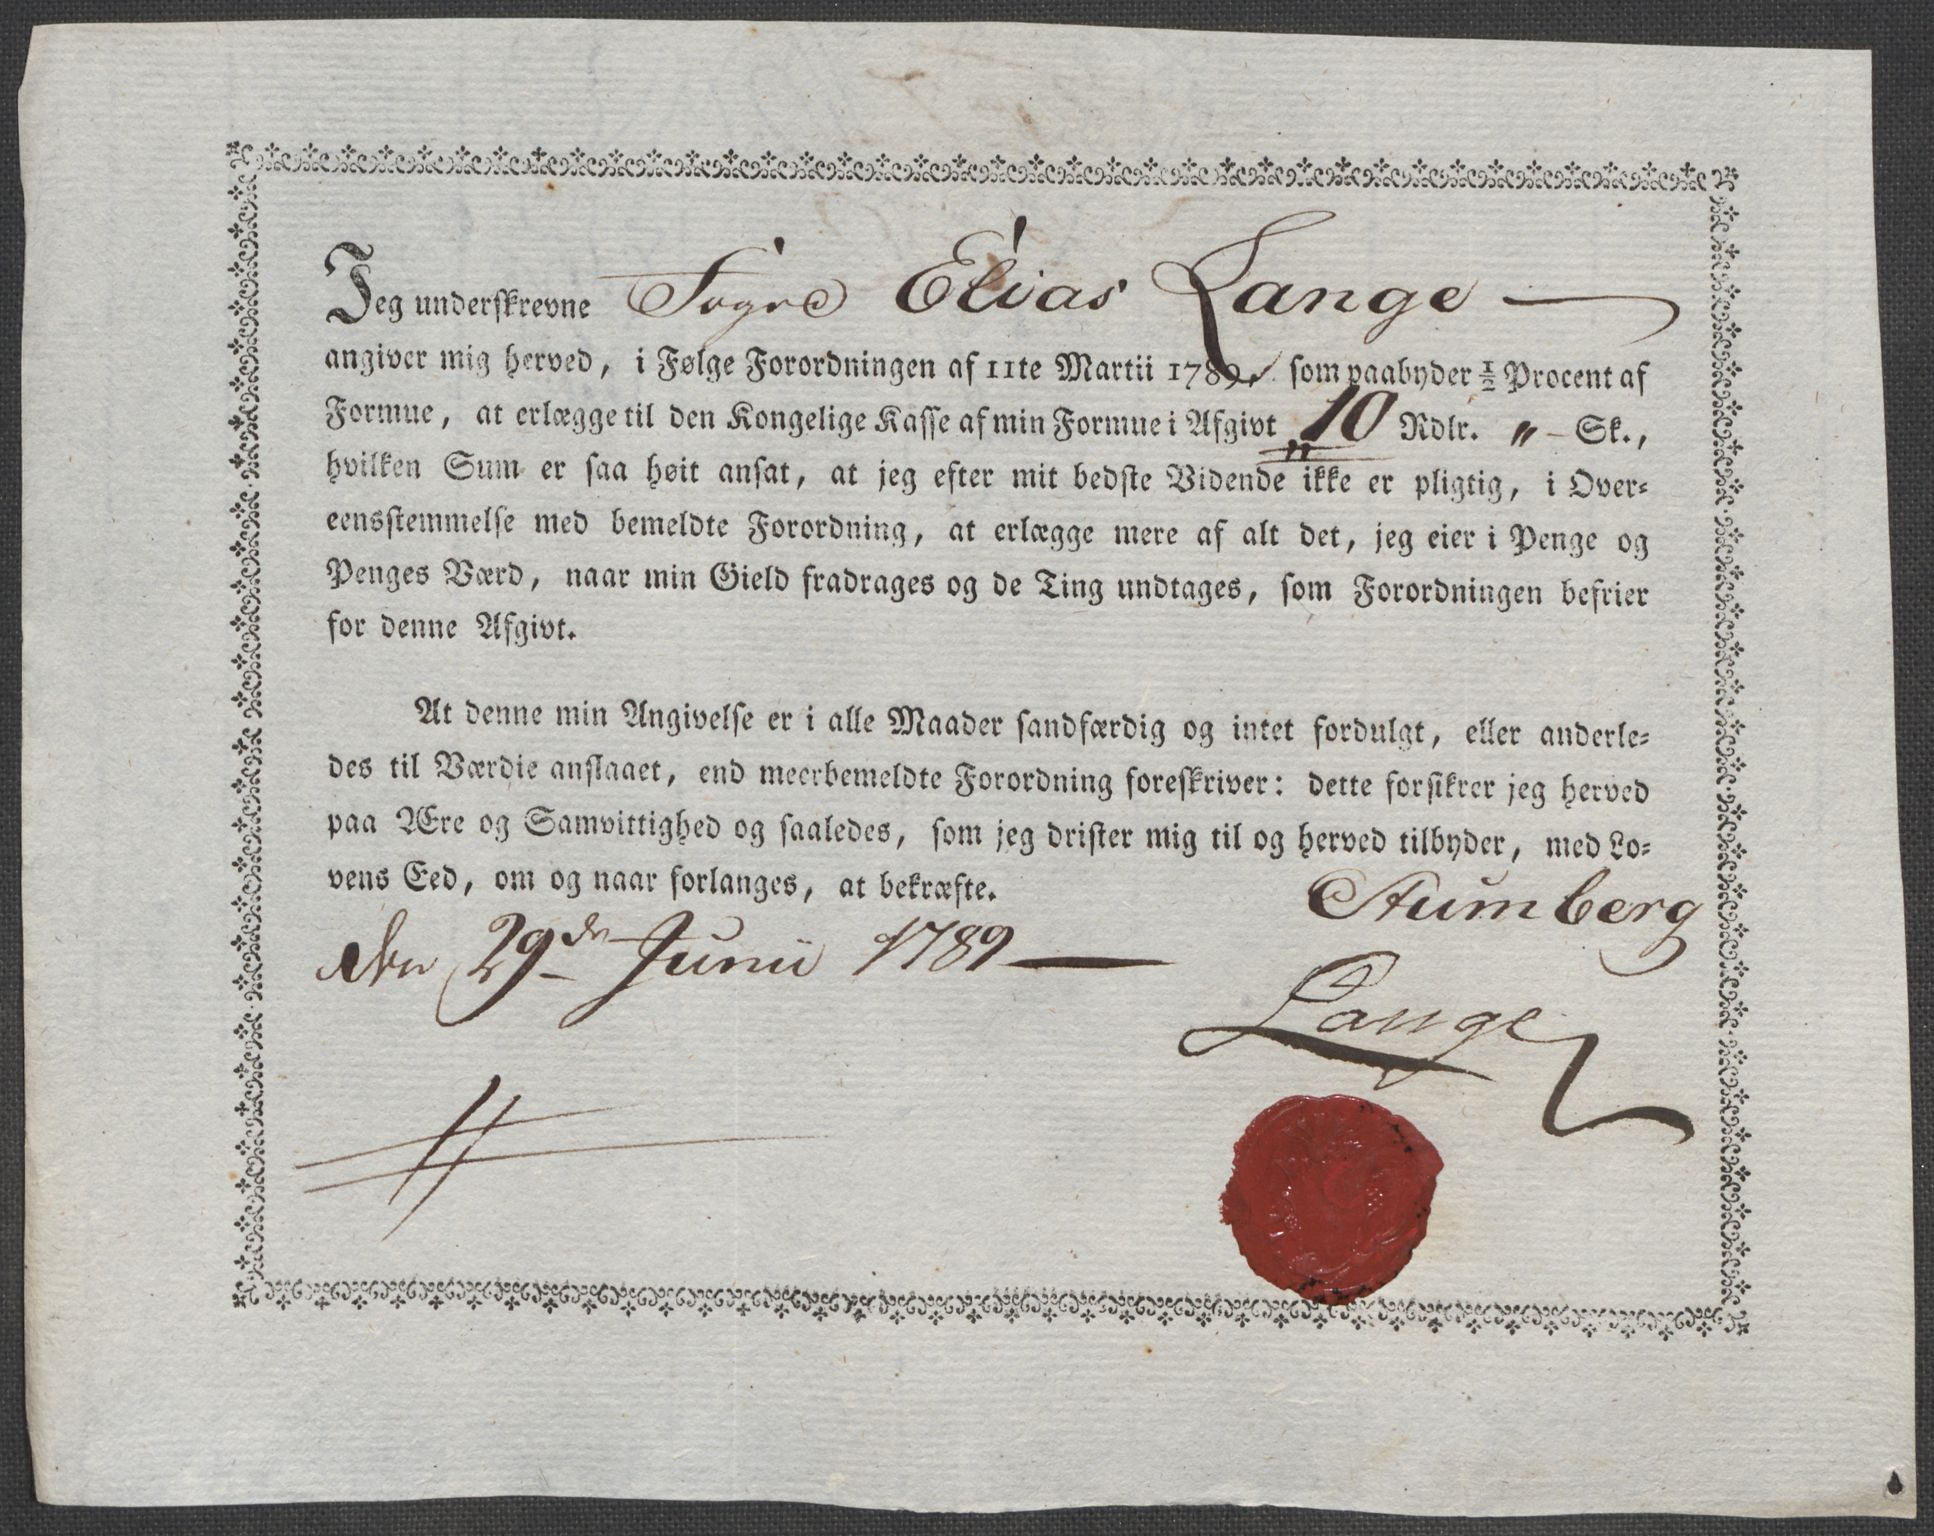 Jeg underskrevne Sogne Elias Lange —
angiver mig herved, i Følge Forordningen af 11te Martii 1789, som paabyder ½ Procent af
Formue, at erlægge til den Kongelige Kasse af min Formue i Afgivt „10 Rdlr. „ – Sk.,
hvilken Sum er saa høit ansat, at jeg efter mit bedste Vidende ikke er pligtig, i Over-
eensstemmelse med bemeldte Forordning, at erlægge mere af alt det, jeg eier i Penge og
Penges Værd, naar min Gield fradrages og de Ting undtages, som Forordningen befrier
for denne Afgivt.
At denne min Angivelse er i alle Maader sandfærdig og intet fordulgt, eller anderle-
des til Værdie anslaaet, end meerbemeldte Forordning foreskriver: dette forsikrer jeg herved
paa Ære og Samvittighed og saaledes, som jeg drister mig til og herved tilbyder, med Lo-
vens Eed, om og naar forlanges, at bekræfte.
Stumberg
den 29de Junii 1789 —
Lange